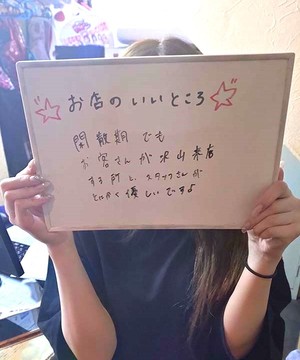 ☆お店のいいところ☆
閑散期でも
お客さんが沢山来店
する所と、スタッフさんが
とにかく優しいです♪